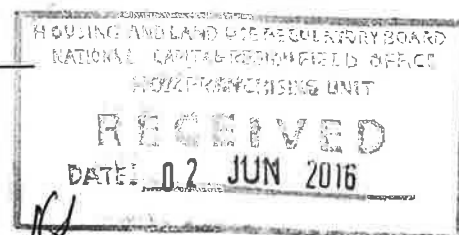 HOUSING AND LAND USE REGULATORY BOARD
NATIONAL CAPITAL REGION FIELD OFFICE
UNIT
RECEIVED
DATE: 02 JUN 2016